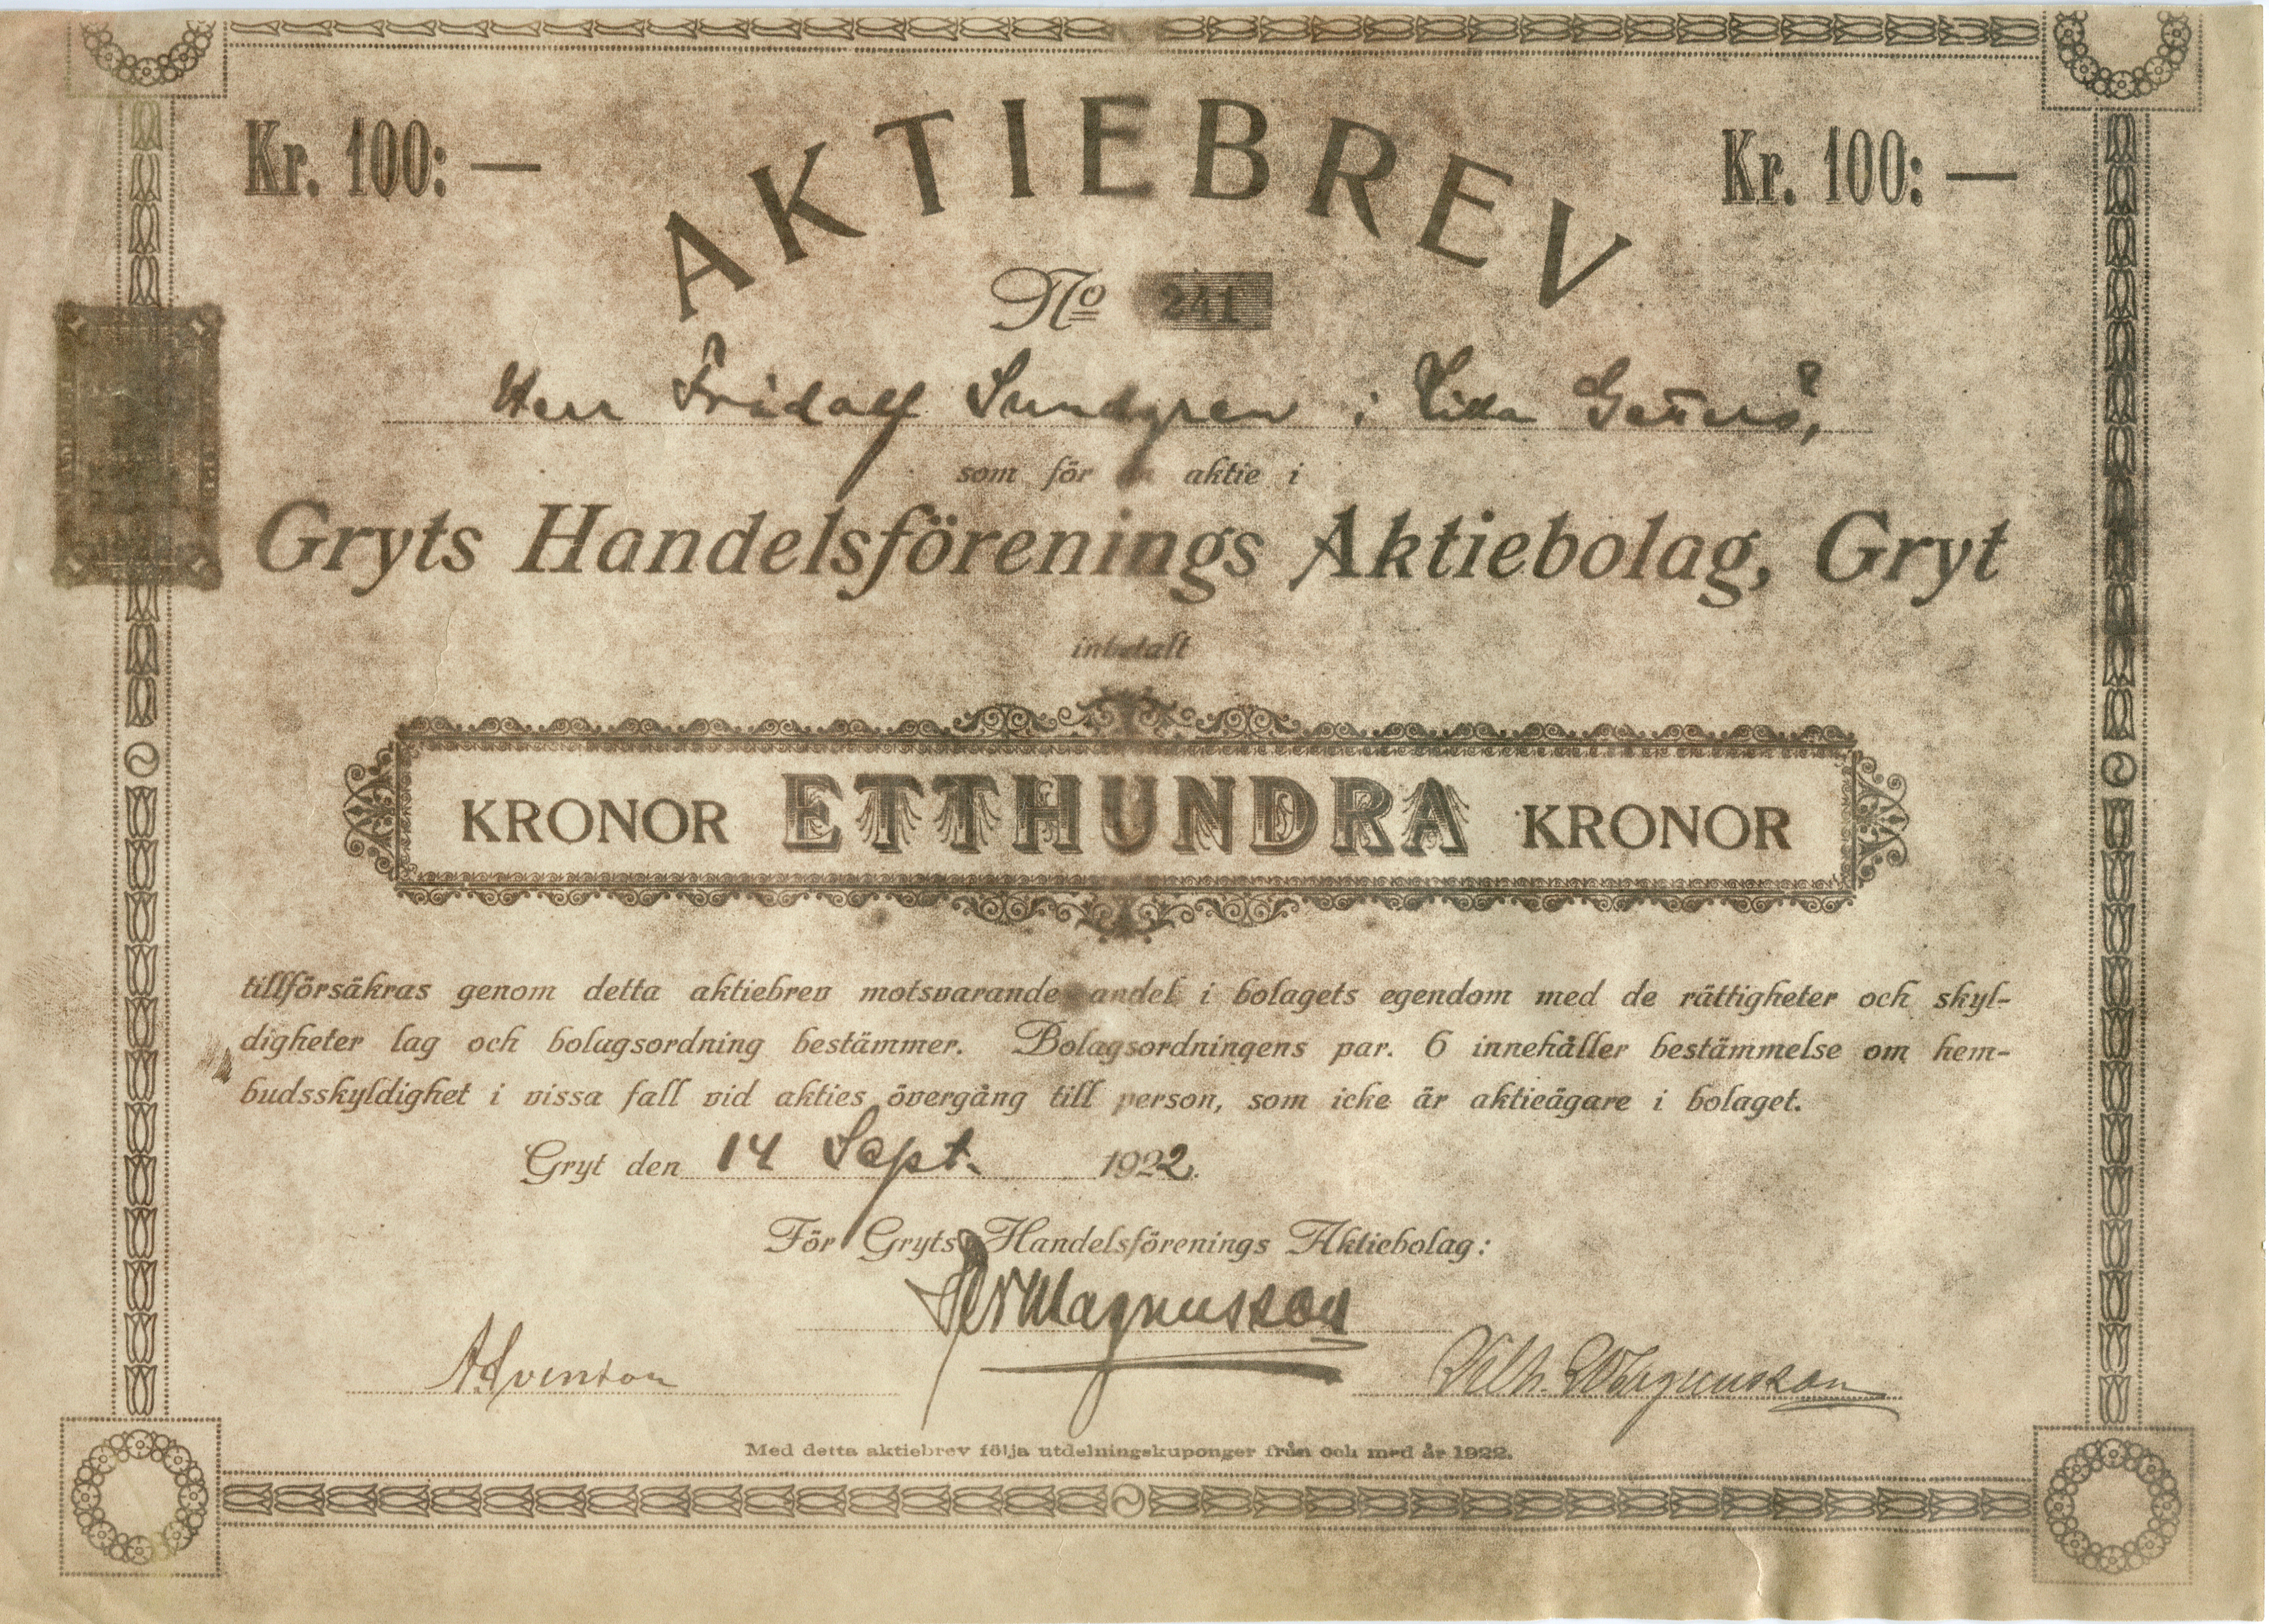 Kr. 100: — AKTIEBREV Kr. 100: —
No 241
Herr Fridolf Sundgren i Lilla
som för en aktie i
Gryts Handelsförenings Aktiebolag, Gryt
inbetalt
KRONOR ETTHUNDRA KRONOR
tillförsäkras genom detta aktiebrev motsvarande andel i bolagets egendom med de rättigheter och skyl-
digheter lag och bolagsordning bestämmer. Bolagsordningens par. 6 innehåller bestämmelse om hem-
budsskyldighet i vissa fall vid akties övergång till person, som icke är aktieägare i bolaget.
Gryt den 14 Sept. 1922.
För Gryts Handelsförenings Aktiebolag:
Per Magnusson
Vilh. Magnusson
Med detta aktiebrev följa utdelningskuponger från och med år 1922.